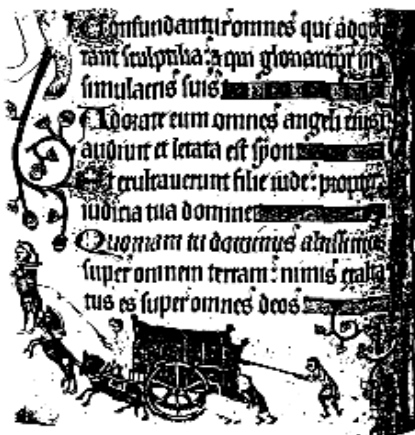 Confundantur omnes qui ador
rant sculptilia: et qui gloriantur in
simulacris suis
Adorate eum omnes angeli eius
audiuit et letata est syon
Et exultauerunt filie iude: propter
iudicia tua domine
Quoniam tu dominus altissimus
super omnem terram: nimis exalta
tus es super omnes deos